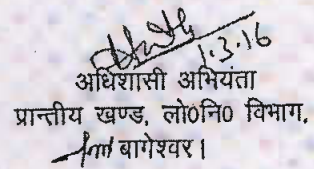 1.3.16
अधिशासी अभियंता
प्रान्तीय खण्ड, लो0नि0 विभाग,
बागेश्वर।